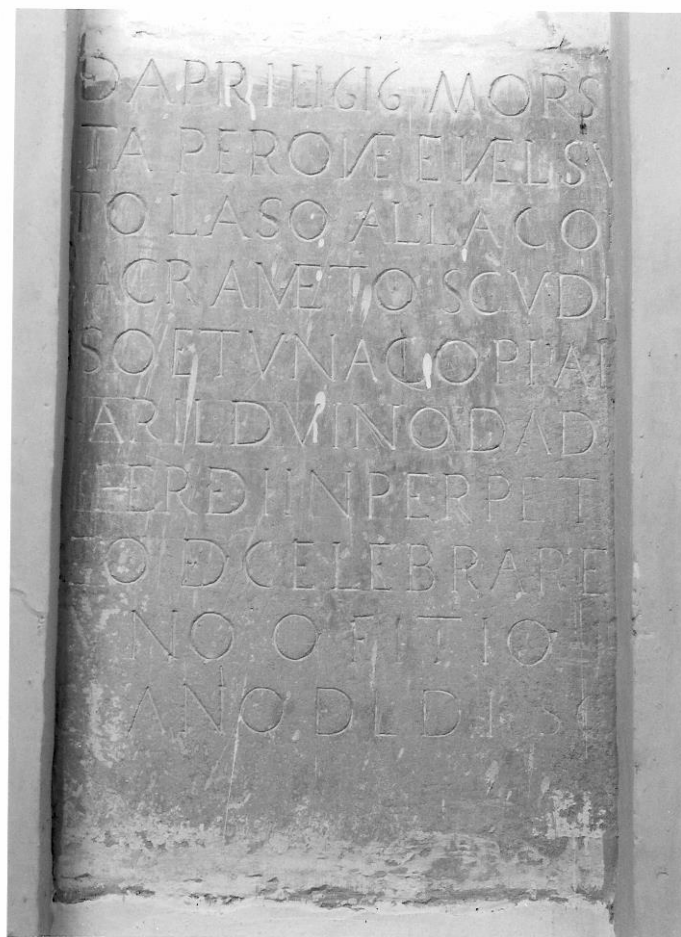 DAPRILI 1616 MORS
TA PERONÆ E VÆLSV
TO LASO ALLA CO
ACRAMETO SCVDI
SO ET VNA COPIA
ARIL D VINO DA D
ERDI IN PERPET
TO D CELEBRARE
NO OFITIO
ANO D L D I SC